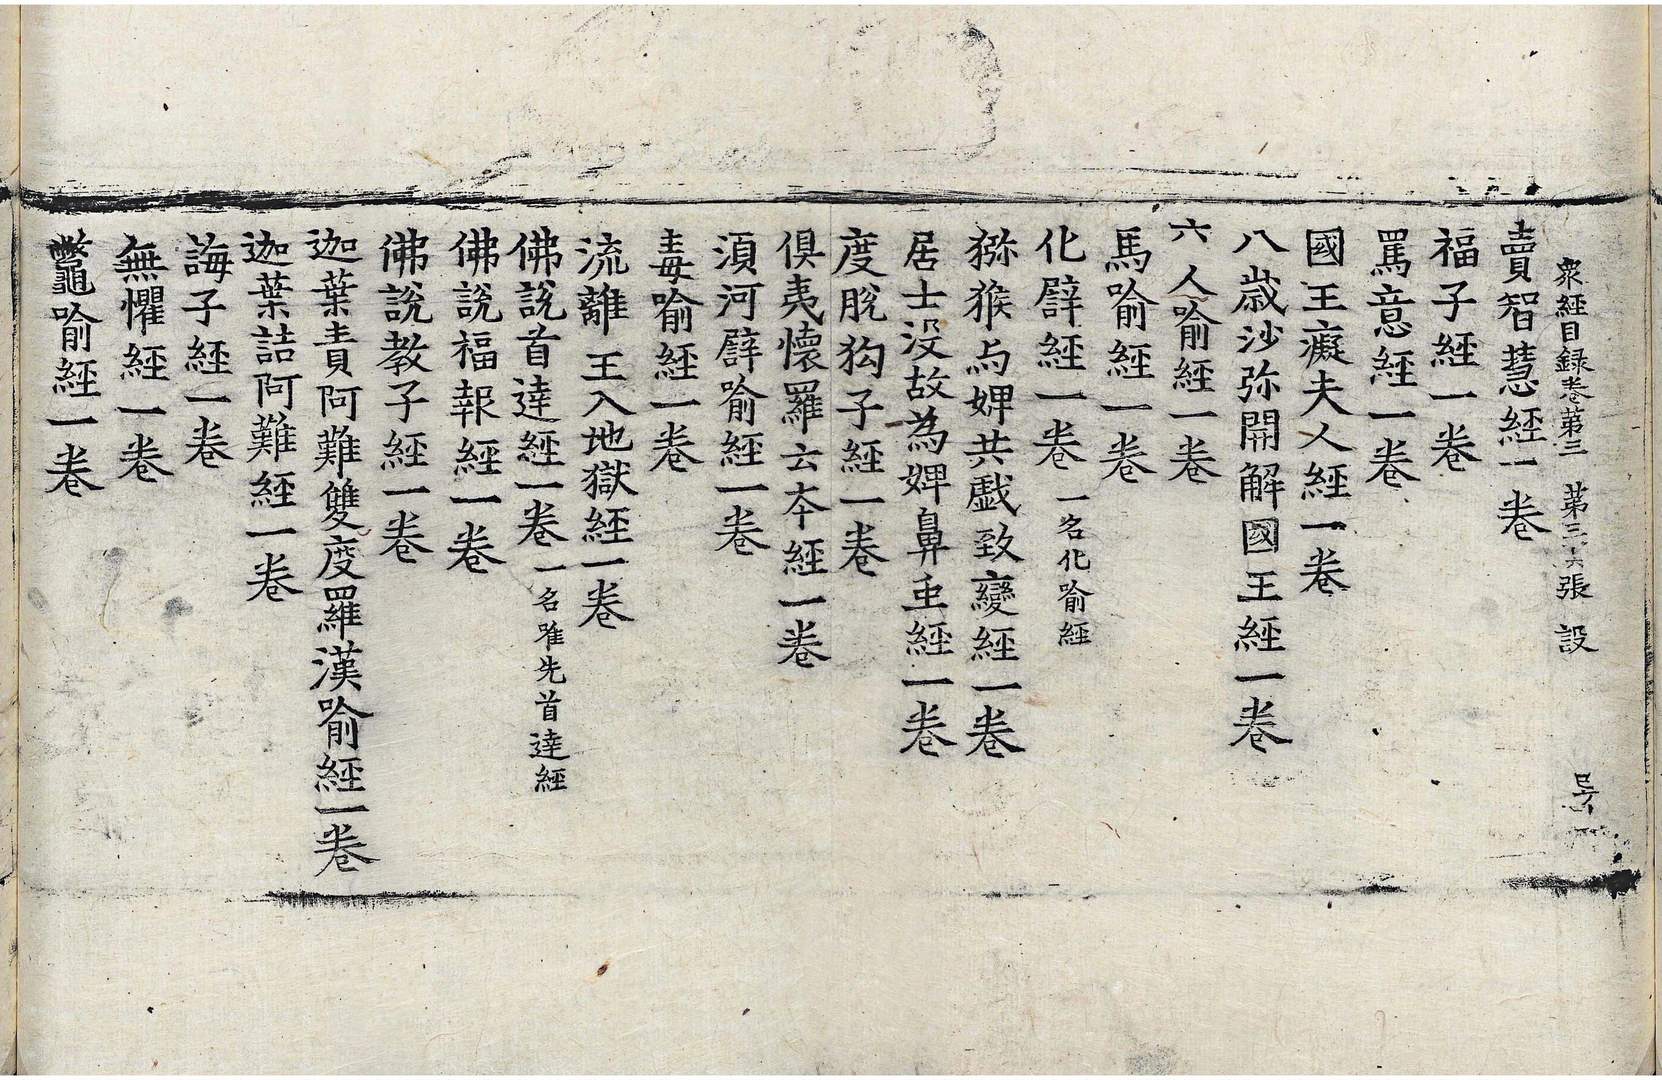 衆經目録卷第三　第三六張　設
賣智慧經一卷
福子經一卷
罵意經一卷
國王癡夫人經一卷
八歳沙弥開解國王經一卷
六人喻經一卷
馬喻經一卷
化譬經一卷　一名化喻經
猕猴与婢共戯致變經一卷
居士没故為婢鼻虫經一卷
度脫狗子經一卷
俱夷懷羅云夲經一卷
湏河譬喻經一卷
毒喻經一卷
流離王入地獄經一卷
佛說首達經一卷　一名唯先首達經
佛說福報經一卷
佛說教子經一卷
迦葉責阿難雙度羅漢喻經一卷
迦葉詰阿難經一卷
誨子經一卷
無懼經一卷
鼈喻經一卷